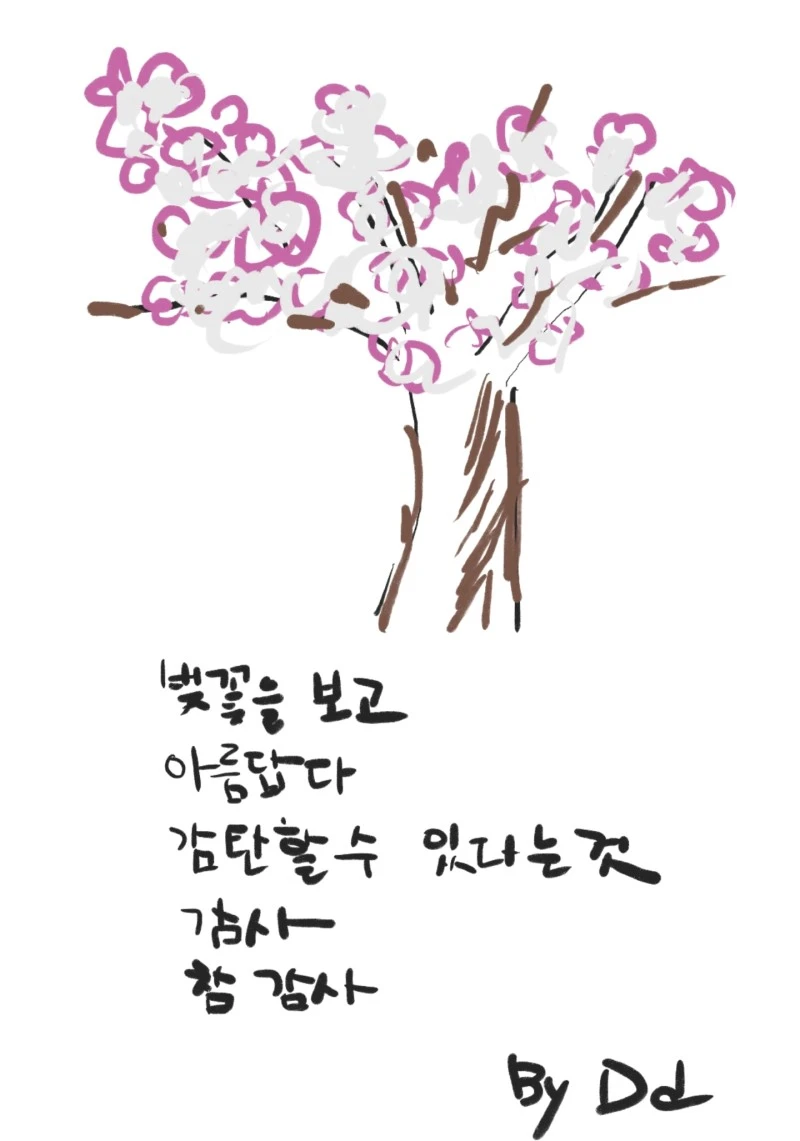 벚꽃을 보고
아름답다
감탄할수 있다는것
감사
참 감사
By Dd